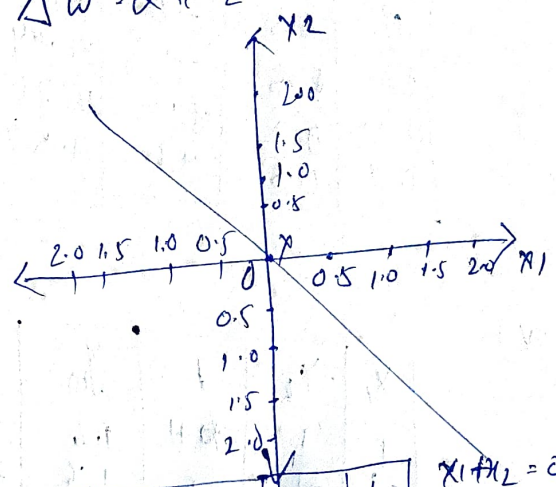 Δw = α
x2
2.0
1.5
1.0
0.5
2.0 1.5 1.0 0.5
0 0.5 1.0 1.5 2.0 x1
0.5
1.0
1.5
2.0
x1+x2 =